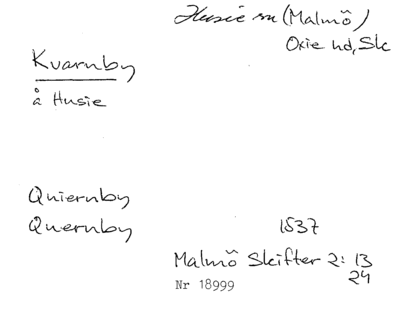 Husie sn (Malmö)
Oxie hd, Sk
Kvarnby
å Husie
Quiernby
Quernby 1537
Malmö Skifter 2: 13
24
Nr 18999